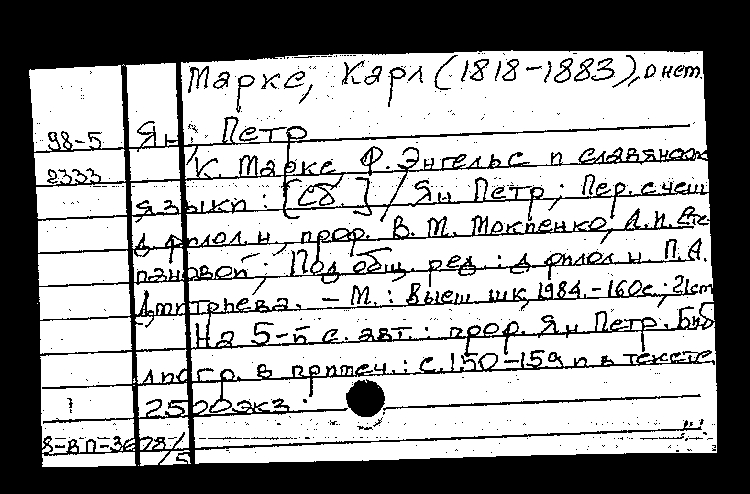 Маркс, Карл (1818-1883), о нем.
98-5 Ян, Петр
2333 К. Маркс, Ф. Энгельс и славянские
языки: [Сб.] / Ян Петр; Пер. с чеш.
д. филол. н., проф. В. М. Мокиенко, Л. И. Сте
пановой; Под общ. ред.: д. филол. н. П. А.
Дмитриева. - М.: Высш. шк, 1984. - 160с.; 21см
На 5-й с. авт.: проф. Ян Петр. Биб
лиогр. в примеч.: с. 150-159 и в тексте.
1 2500экз.
8-ВП-3678/5